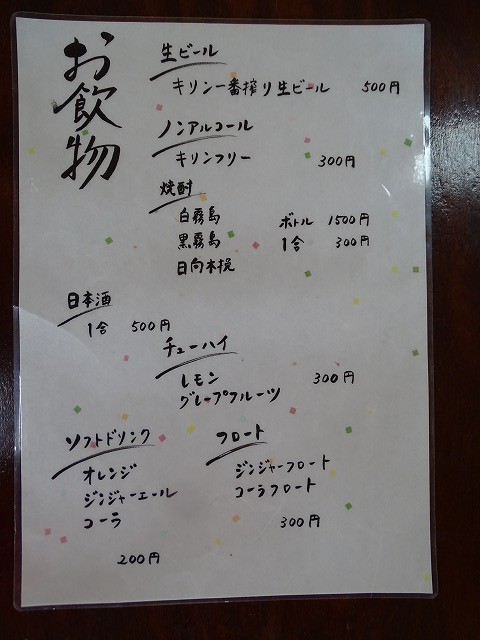 お飲物
生ビール
キリン一番搾り生ビール 500円
ノンアルコール
キリンフリー 300円
焼酎
白霧島 ボトル 1500円
黒霧島 1合 300円
日向木挽
日本酒
1合 500円
チューハイ
レモン 300円
グレープフルーツ
ソフトドリンク
オレンジ
ジンジャーエール
コーラ
200円
フロート
ジンジャーフロート
コーラフロート
300円